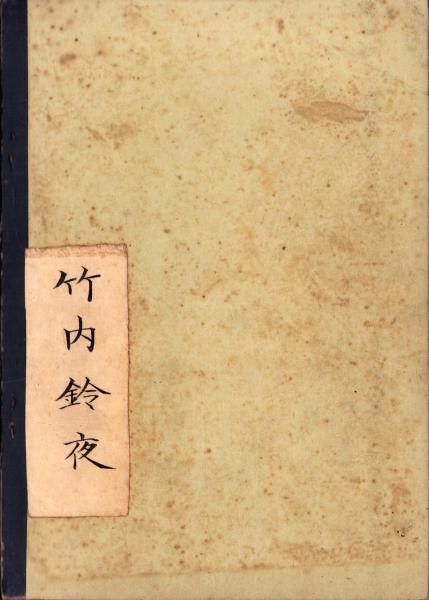 竹内鈴夜